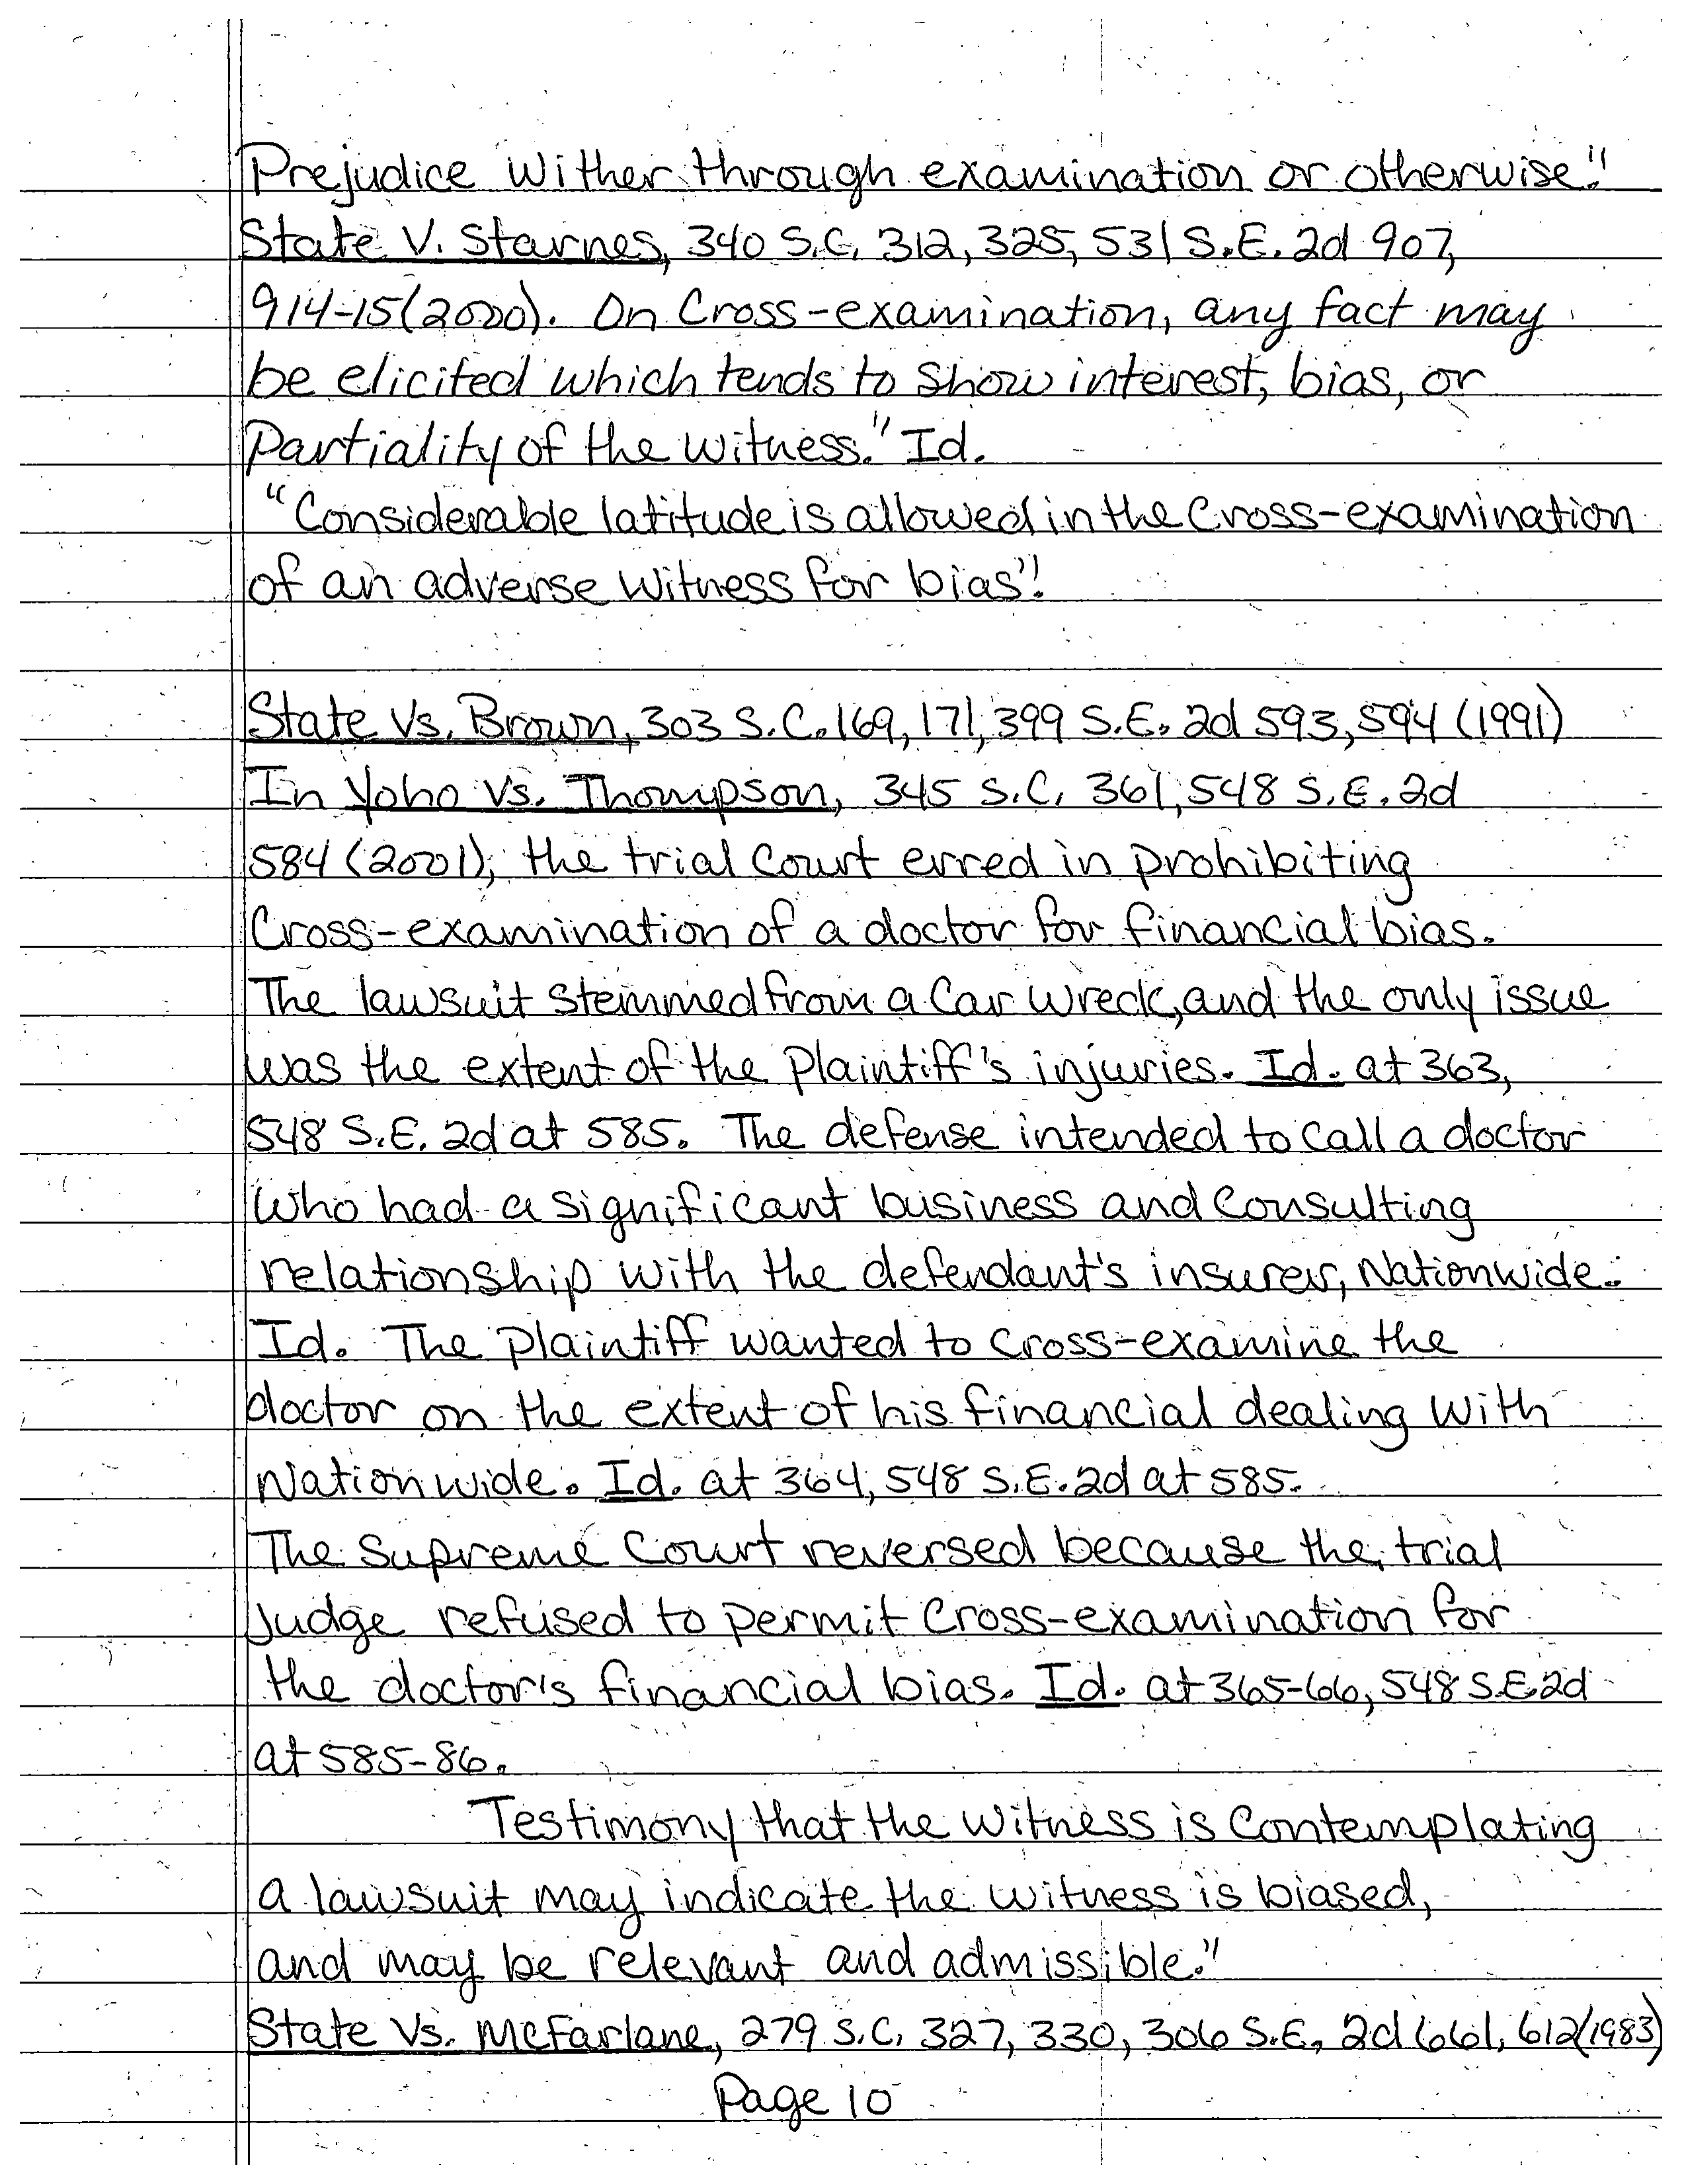 Prejudice Wither through examination or otherwise."
State V. Starnes, 340 S.C. 312, 325, 531 S.E. 2d 907,
914-15(2000). On Cross-examination, any fact may
be elicited which tends to show interest, bias, or
Partiality of the witness." Id.
"Considerable latitude is allowed in the Cross-examination
of an adverse witness for bias".
State Vs. Brown, 303 S.C. 169, 171, 399 S.E. 2d 593, 594 (1991)
In Yoho Vs. Thompson, 345 S.C. 361, 548 S.E. 2d
584 (2001), the trial Court erred in prohibiting
Cross-examination of a doctor for financial bias.
The lawsuit stemmed from a Car wreck, and the only issue
was the extent of the Plaintiff's injuries. Id. at 363,
548 S.E. 2d at 585. The defense intended to call a doctor
Who had a significant business and Consulting
relationship with the defendant's insurer, Nationwide.
Id. The Plaintiff wanted to cross-examine the
doctor on the extent of his financial dealing with
Nationwide. Id. at 364, 548 S.E. 2d at 585.
The Supreme Court reversed because the trial
Judge refused to permit Cross-examination for
the doctor's financial bias. Id. at 365-66, 548 S.E.2d
at 585-86.
Testimony that the witness is Contemplating
a lawsuit may indicate the witness is biased,
and may be relevant and admissible."
State Vs. McFarlane, 279 S.C. 327, 330, 306 S.E. 2d 661, 612(1983)
Page 10